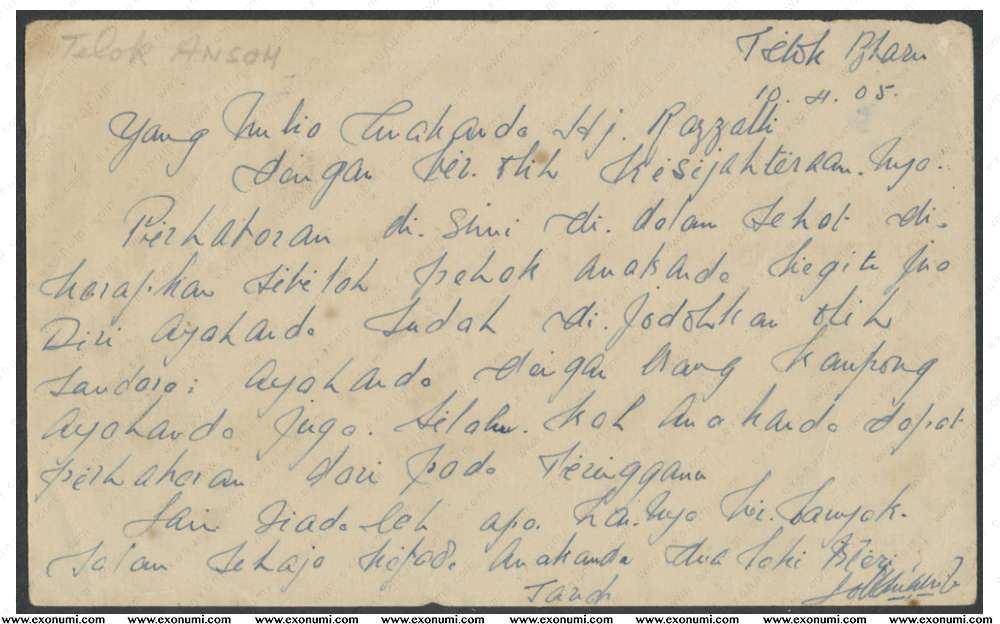 Telok ANSOM
Telok Bharu
10. 4. 05.
Yang Mulio Anakanda Hj. Razzalli
dengan ber. olih kesijahteraan. Nyo.
Perkhaboran di. Sini di. dalam sehat di-
harapkan sebelah pehak anakanda begitu juo
Diri ayahanda sudah di. Jodohkan olih
saudara: ayahanda dengan orang kampong
ayahanda juga. selalu. kah anakanda dapat
perkhaboran dari pada Teringganu
Lain tiada lah apo. han. Nyo ber. banyak.
Salam sehaja kepada anakanda dua laki Isteri
www.exonumi.com www.exonumi.com www.exonumi.com www.exonumi.com www.exonumi.com www.exonumi.com www.exonumi.com